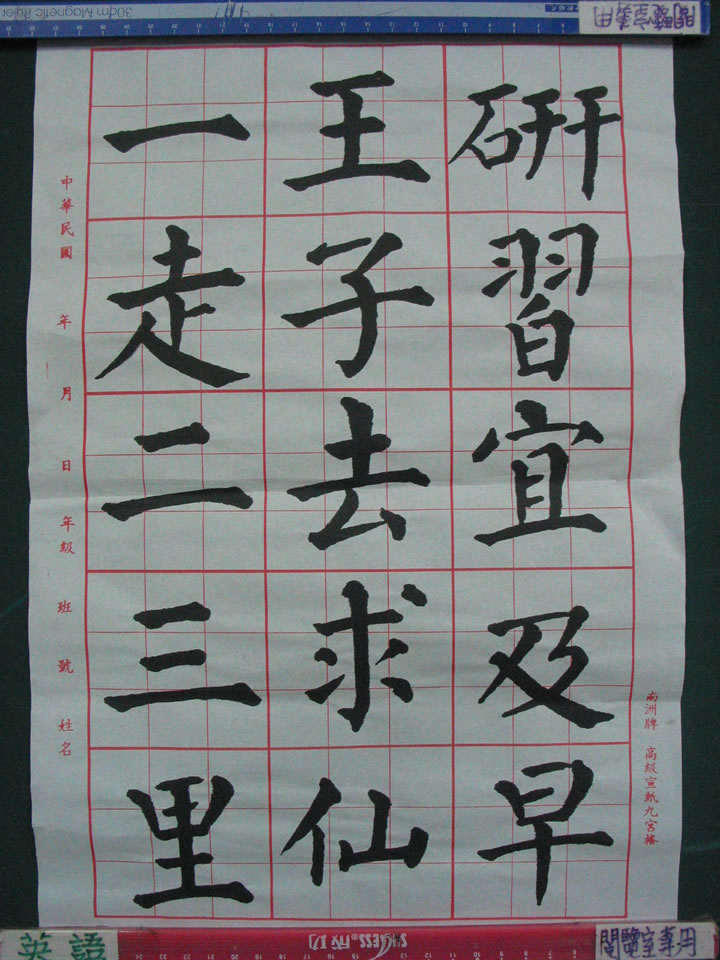 研習宜及早
王子去求仙
一走二三里
中華民國 年 月 日 年級 班 號 姓名
南洲牌 高級宣紙九宮格
30cm Magnetic Ruler
閱覽室專用
英語
SUCCESS® 成功
閱覽室專用